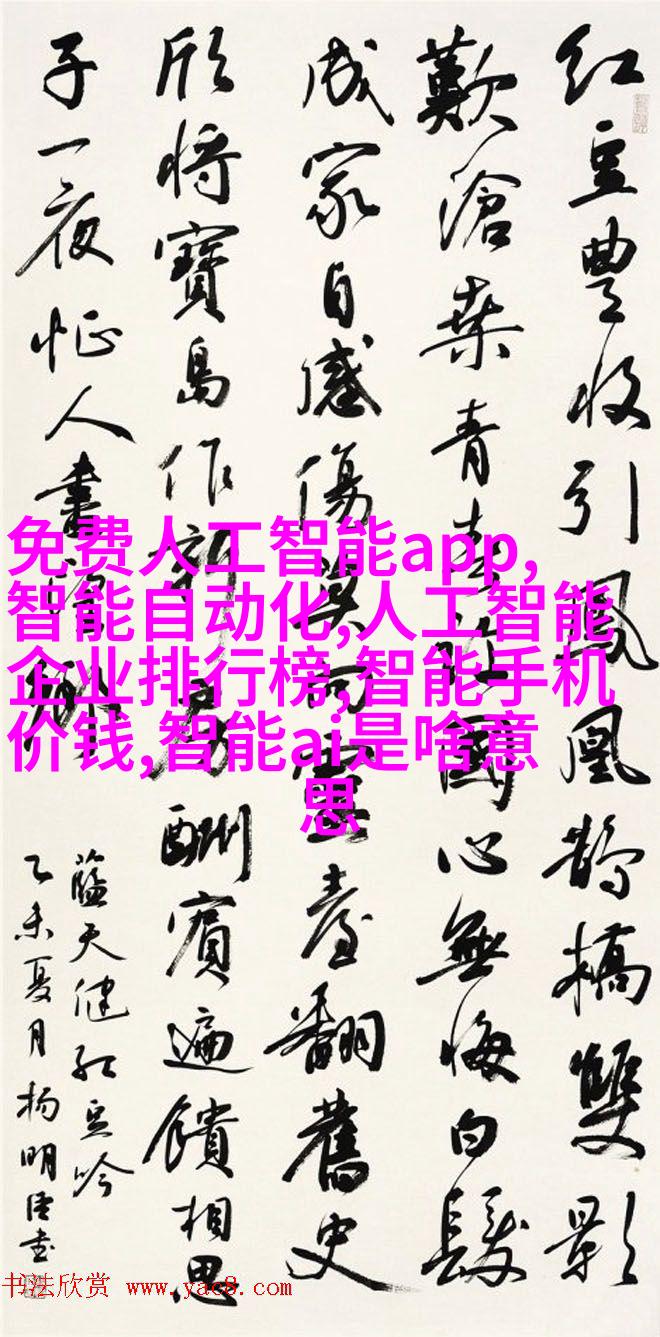 红豆豊收引鳳凰鵲橋雙影
歎滄桑青春許國心無悔白髮
成家自感傷莫問靈臺翻舊史
欣將寶島作新房酬賓遍饋相思
子一夜忙人書
蓝天健红豆吟
乙未夏月杨明臣书
免费人工智能app,
智能自动化,人工智能
企业排行榜,智能手机
价钱,智能ai是啥意
思
书法欣赏 www.yac8.com